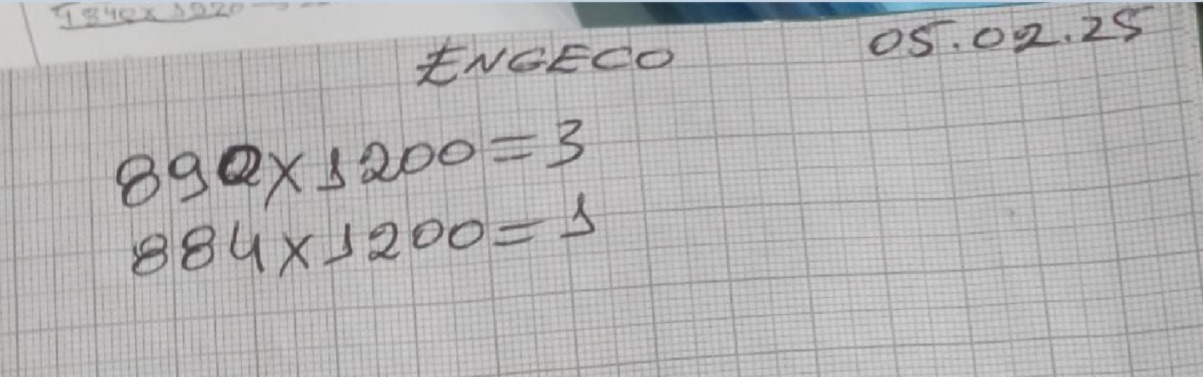 ENGECO 05.02.25
892x1200=3
884x1200=1